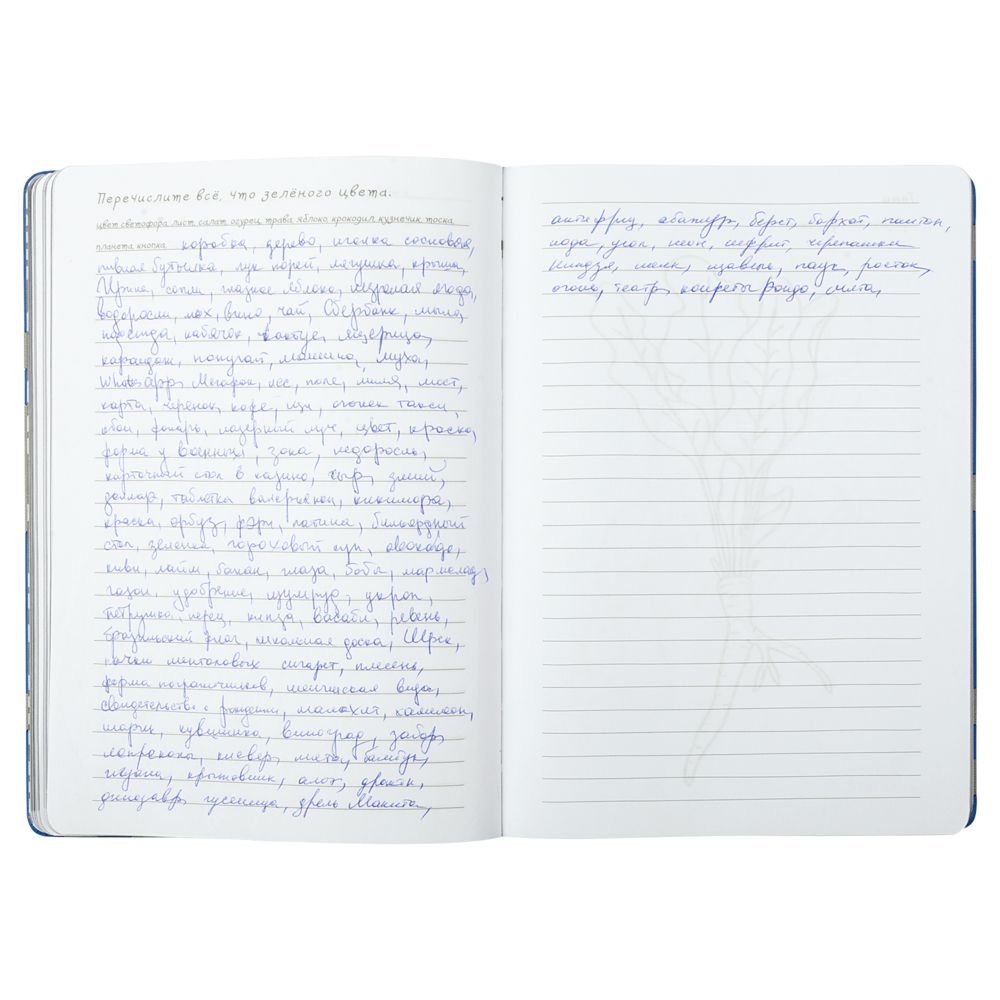 Перечислите всё, что зелёного цвета.
цвет светофора, лист, салат, огурец, трава, яблоко, крокодил, кузнечик, тоска,
планета, кнопка, коробка, дерево, иголка сосновая,
пивная бутылка, лук порей, лягушка, крыша,
Ирина, сопли, глазное яблоко, незрелая ягода,
водоросли, мох, вино, чай, Сбербанк, мыло,
кабачок, кактус, ящерица,
карандаш, попугай, машина, муха,
WhatsApp, Мегафон, лес, поле, миля, мост,
карта, черенок, кофе, щи, огонек такси,
обои, фонарь, лазерный луч, цвет, краска,
форма у военных, зона, недоросль,
карточный стол в казино, сыр, змий,
доллар, таблетка валерьянки, кикимора,
краска, арбуз, фэри, патина, бильярдный
стол, зеленка, гороховый суп, авокадо,
киви, лайм, банан, глаза, бобы, мармелад,
газон, удобрение, изумруд, укроп,
петрушка, перец, кинза, васаби, ревень,
бразильский флаг, школьная доска, Шрек,
пачки ментоловых сигарет, плесень,
форма пограничников, шенгенская виза,
свидетельство о рождении, малахит, хамелеон,
шарик, кувшинка, виноград, забор,
клевер, мята, бамбук,
крыжовник, алоэ, дракон,
динозавр, гусеница, дрель Макита,
антифриз, абажур, берет, бархат, питон,
йода, угол, неон, нефрит, черепашки
ниндзя, шелк, щавель, паук, росток,
театр, конфеты Рондо,